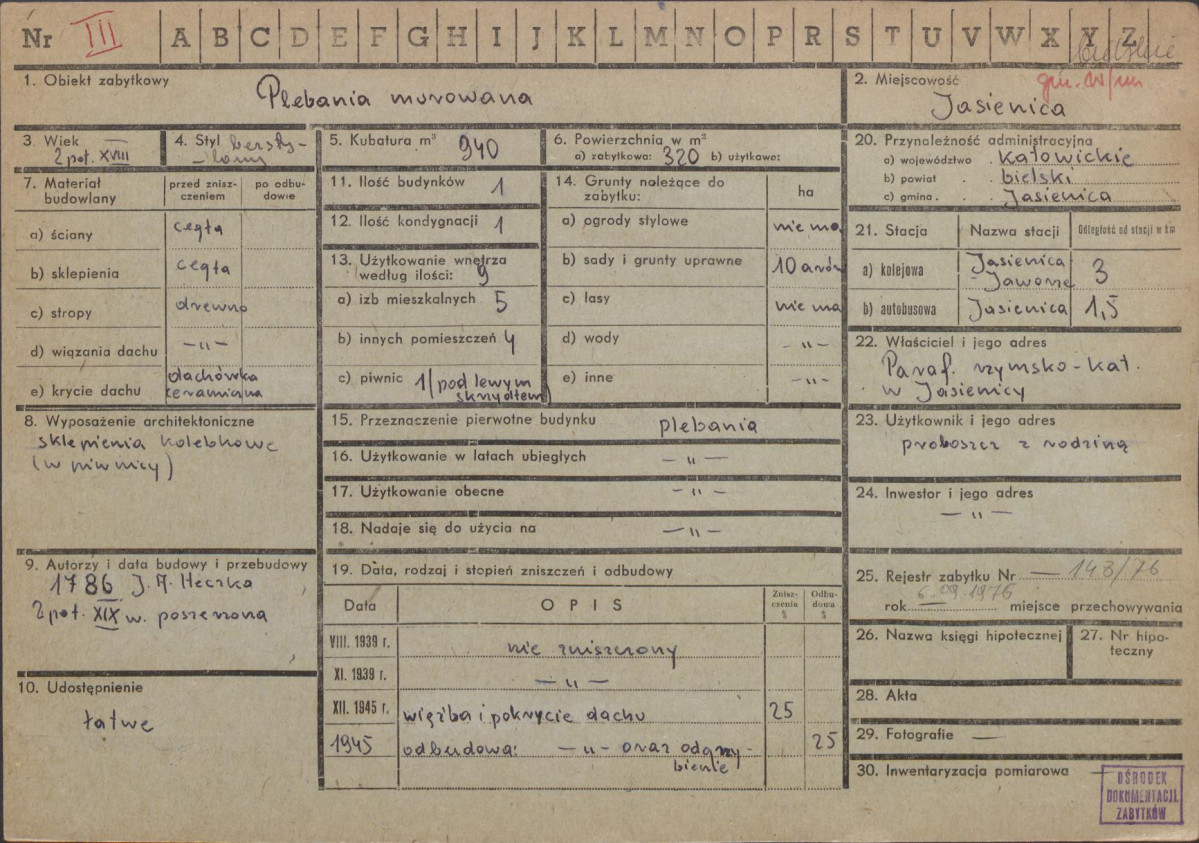 Nr III A B C D E F G H I J K L M N O P R S T U V W X Y Z
bielskie
1. Obiekt zabytkowy
Plebania murowana
2. Miejscowość
Jasienica
3. Wiek
2 poł. XVIII
4. Styl bezsty-
lowy
5. Kubatura m³ 940
6. Powierzchnia w m²
a) zabytkowa: 320 b) użytkowa:
20. Przynależność administracyjna
a) województwo . Katowickie
b) powiat . . bielski
c) gmina . . Jasienica
7. Materiał budowlany
przed znisz-
czeniem
po odbu-
dowie
a) ściany cegła
b) sklepienia cegła
c) stropy drewno
d) wiązania dachu — „ —
e) krycie dachu dachówka
ceramiczna
11. Ilość budynków 1
12. Ilość kondygnacji 1
13. Użytkowanie wnętrza
według ilości: 9
a) izb mieszkalnych 5
b) innych pomieszczeń 4
c) piwnic 1 (pod lewym
skrzydłem)
14. Grunty należące do
zabytku:
ha
a) ogrody stylowe nie ma
b) sady i grunty uprawne 10 arów
c) lasy nie ma
d) wody - „ -
e) inne - „ -
21. Stacja Nazwa stacji Odległość od stacji w km
a) kolejowa Jasienica
- Jaworze 3
b) autobusowa Jasienica 1,5
22. Właściciel i jego adres
Paraf. rzymsko-kat.
w Jasienicy
8. Wyposażenie architektoniczne
sklepienia kolebkowe
(w piwnicy)
15. Przeznaczenie pierwotne budynku plebania
16. Użytkowanie w latach ubiegłych — „ —
17. Użytkowanie obecne — „ —
18. Nadaje się do użycia na — „ —
23. Użytkownik i jego adres
proboszcz z rodziną
24. Inwestor i jego adres
— „ —
9. Autorzy i data budowy i przebudowy
1786 J. A. Heczka
2 poł. XIX w. poszerzona
10. Udostępnienie
łatwe
19. Data, rodzaj i stopień zniszczeń i odbudowy
Data OPIS Znisz-
czenia
%
Odbu-
dowa
%
VIII. 1939 r. nie zniszczony
XI. 1939 r. — „ —
XII. 1945 r. więźba i pokrycie dachu 25
1945 odbudowa: — „ — oraz odgrzy-
bienie 25
25. Rejestr zabytku Nr — 143/76
rok 6.09.1976 miejsce przechowywania
26. Nazwa księgi hipotecznej
27. Nr hipo-
teczny
28. Akta
29. Fotografie —
30. Inwentaryzacja pomiarowa
OŚRODEK
DOKUMENTACJI
ZABYTKÓW